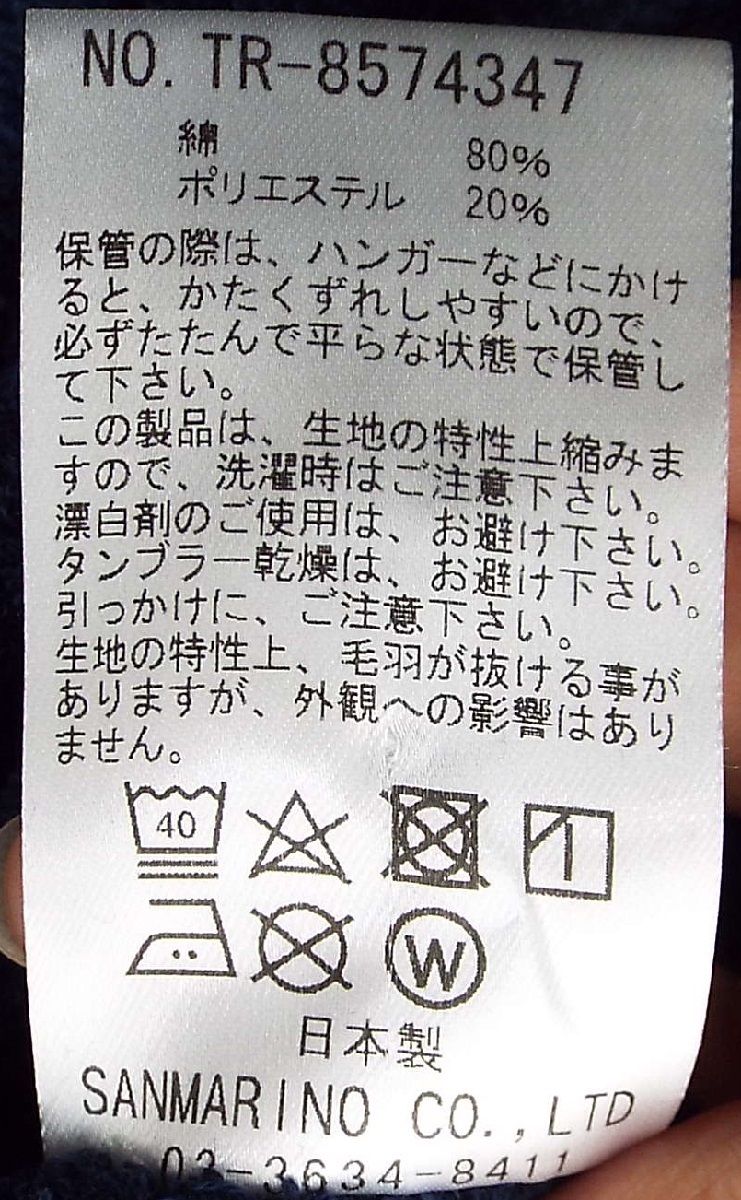 NO. TR-8574347
綿 80%
ポリエステル 20%
保管の際は、ハンガーなどにかけ
ると、かたくずれしやすいので、
必ずたたんで平らな状態で保管し
て下さい。
この製品は、生地の特性上縮みま
すので、洗濯時はご注意下さい。
漂白剤のご使用は、お避け下さい。
タンブラー乾燥は、お避け下さい。
引っかけに、ご注意下さい。
生地の特性上、毛羽が抜ける事が
ありますが、外観への影響はあり
ません。
40
W
日本製
SANMARINO CO.,LTD
03-3634-8411